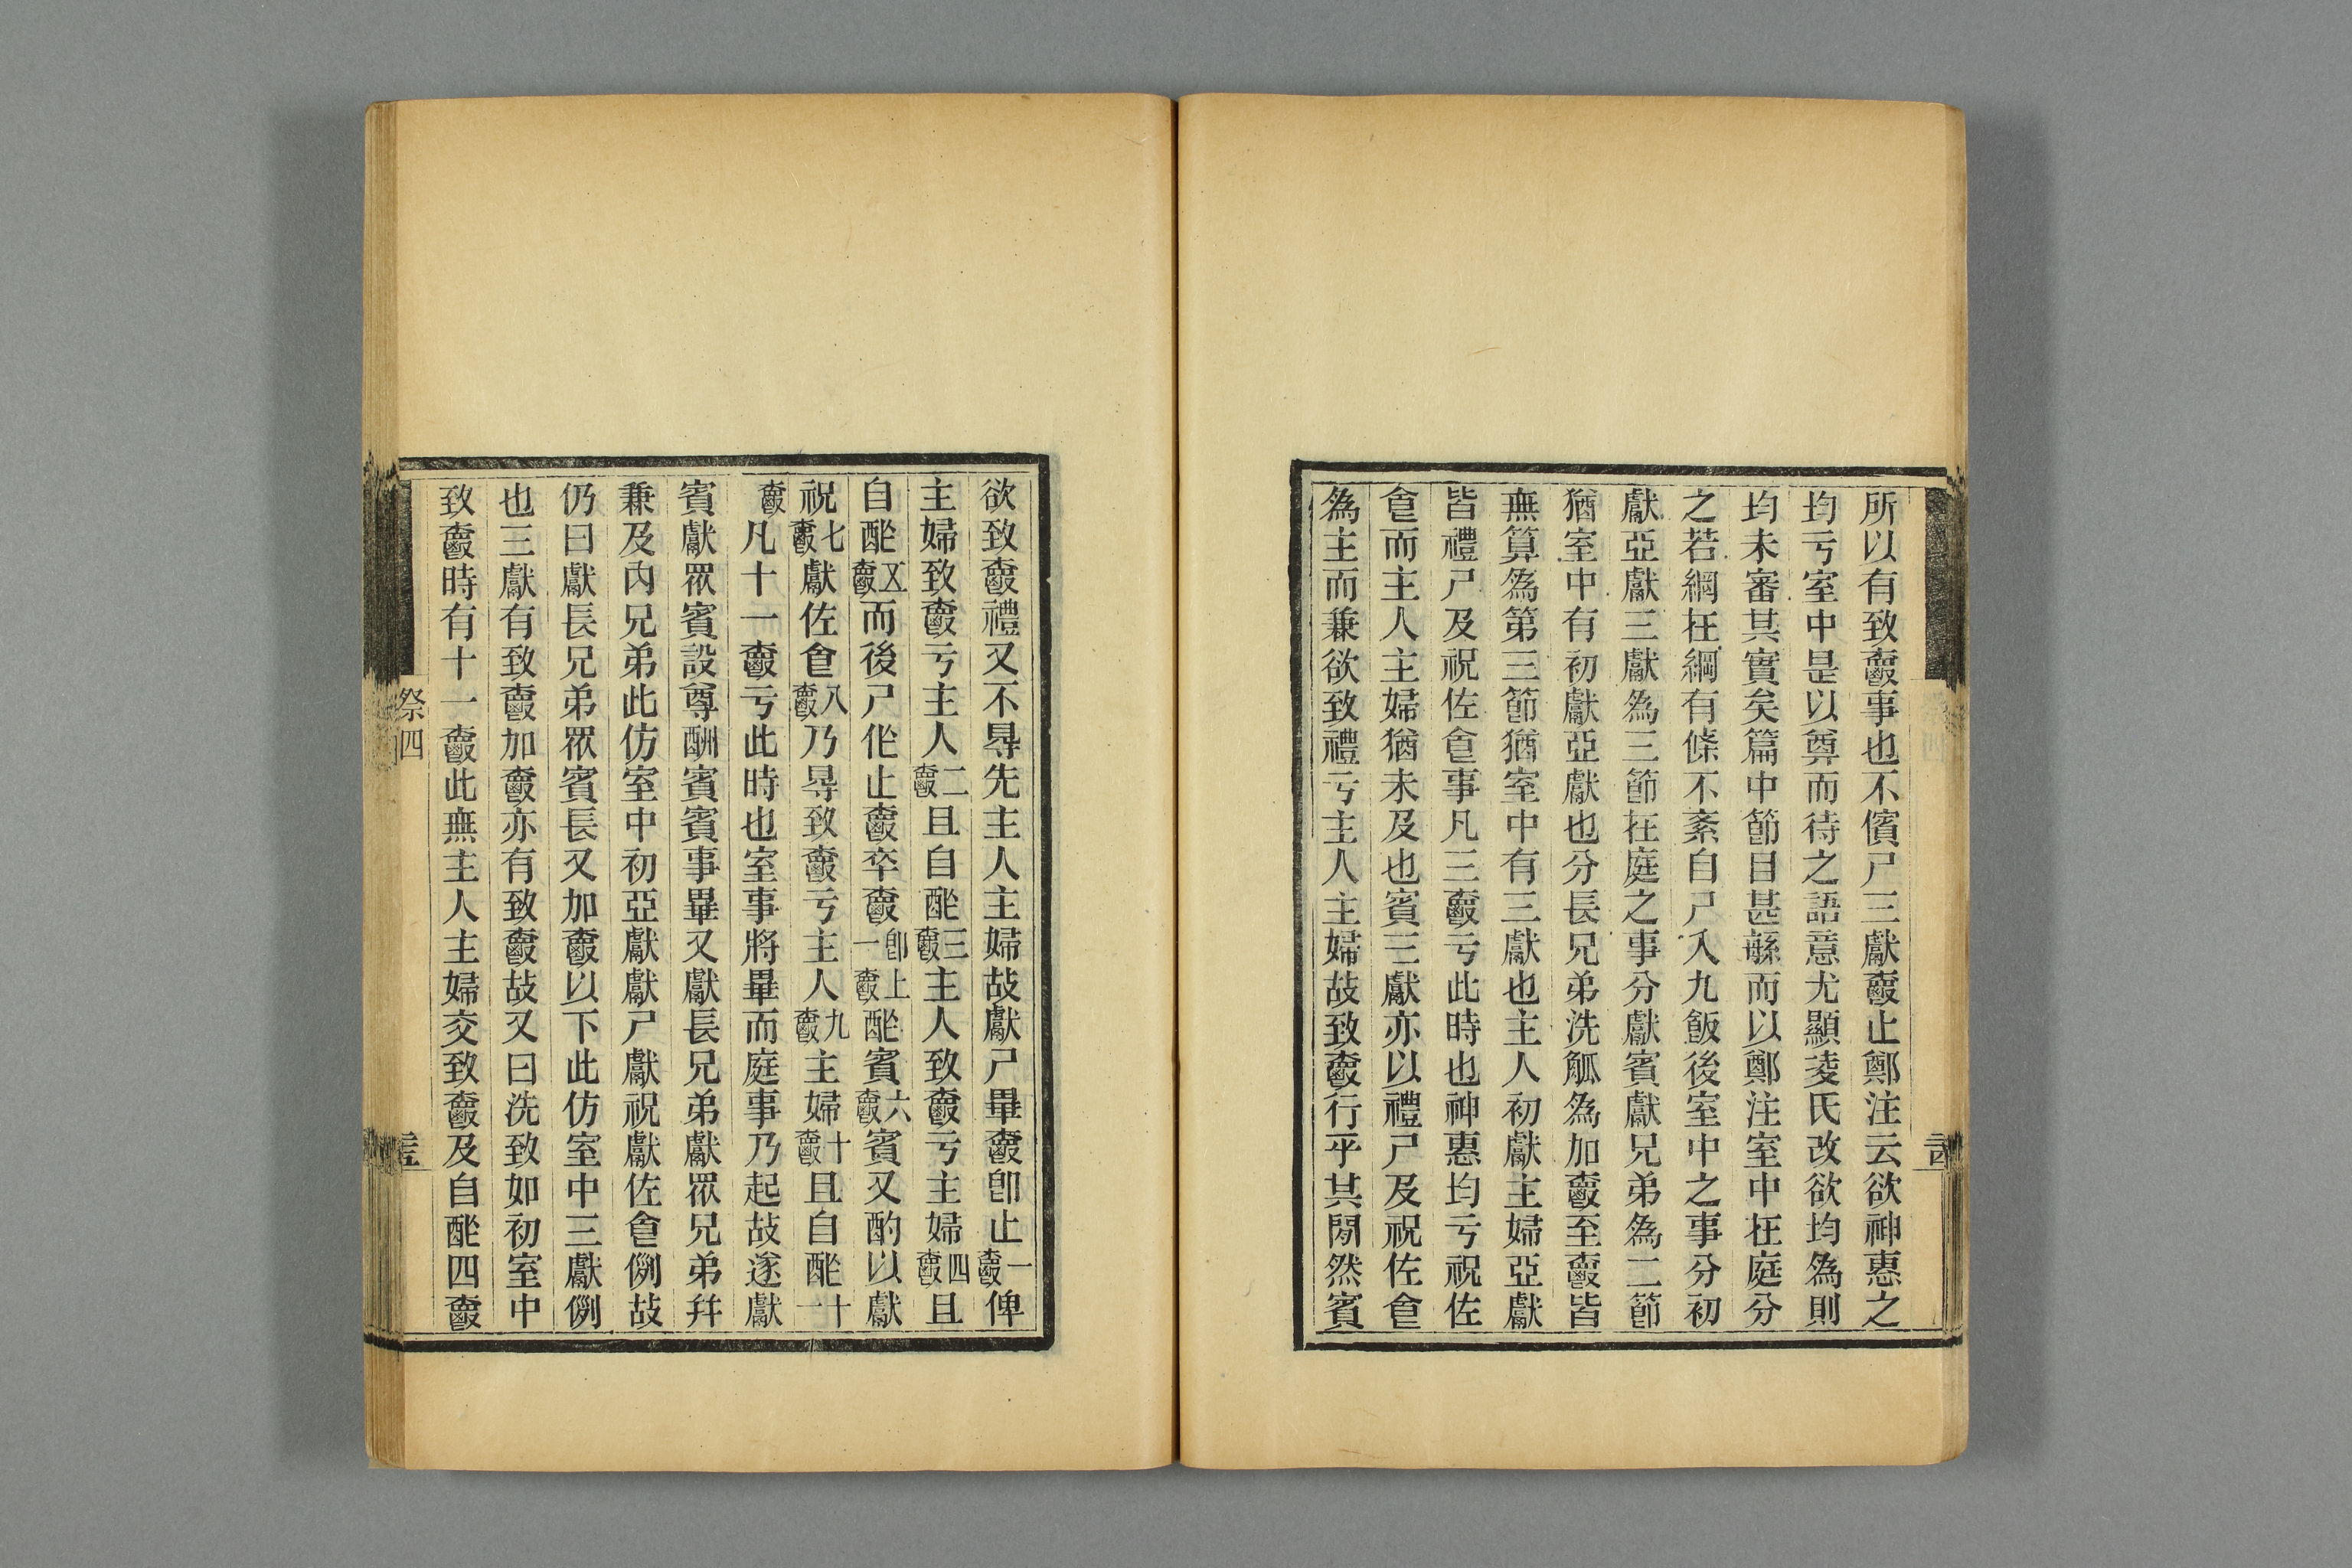 所以有致爵事也不儐尸三獻爵止鄭注云欲神惠之
均亏室中是以奠而待之語意尤顯淩氏改欲均為則
均未審其實矣篇中節目甚緐而以鄭注室中在庭分
之若網在綱有條不紊自尸入九飯後室中之事分初
獻亞獻三獻為三節在庭之事分獻賓獻兄弟為二節
猶室中有初獻亞獻也分長兄弟洗觚為加爵至爵皆
無算為第三節猶室中有三獻也主人初獻主婦亞獻
皆禮尸及祝佐食事凡三爵亏此時也神惠均亏祝佐
食而主人主婦猶未及也賓三獻亦以禮尸及祝佐食
為主而兼欲致禮亏主人主婦故致爵行乎其閒然賓
欲致爵禮又不㝵先主人主婦故獻尸畢爵卽止一爵俾
主婦致爵亏主人二爵且自酢三爵主人致爵亏主婦四爵且
自酢五爵而後尸作止爵卒爵卽上一爵酢賓六爵賓又酌以獻
祝七爵獻佐食八爵乃㝵致爵亏主人九爵主婦十爵且自酢十一
爵凡十一爵亏此時也室事將畢而庭事乃起故遂獻
賓獻眾賓設尊酬賓賓事畢又獻長兄弟獻眾兄弟幷
兼及內兄弟此仿室中初亞獻獻尸獻祝獻佐食例故
仍曰獻長兄弟眾賓長又加爵以下此仿室中三獻例
也三獻有致爵加爵亦有致爵故又曰洗致如初室中
致爵時有十一爵此無主人主婦交致爵及自酢四爵
祭四